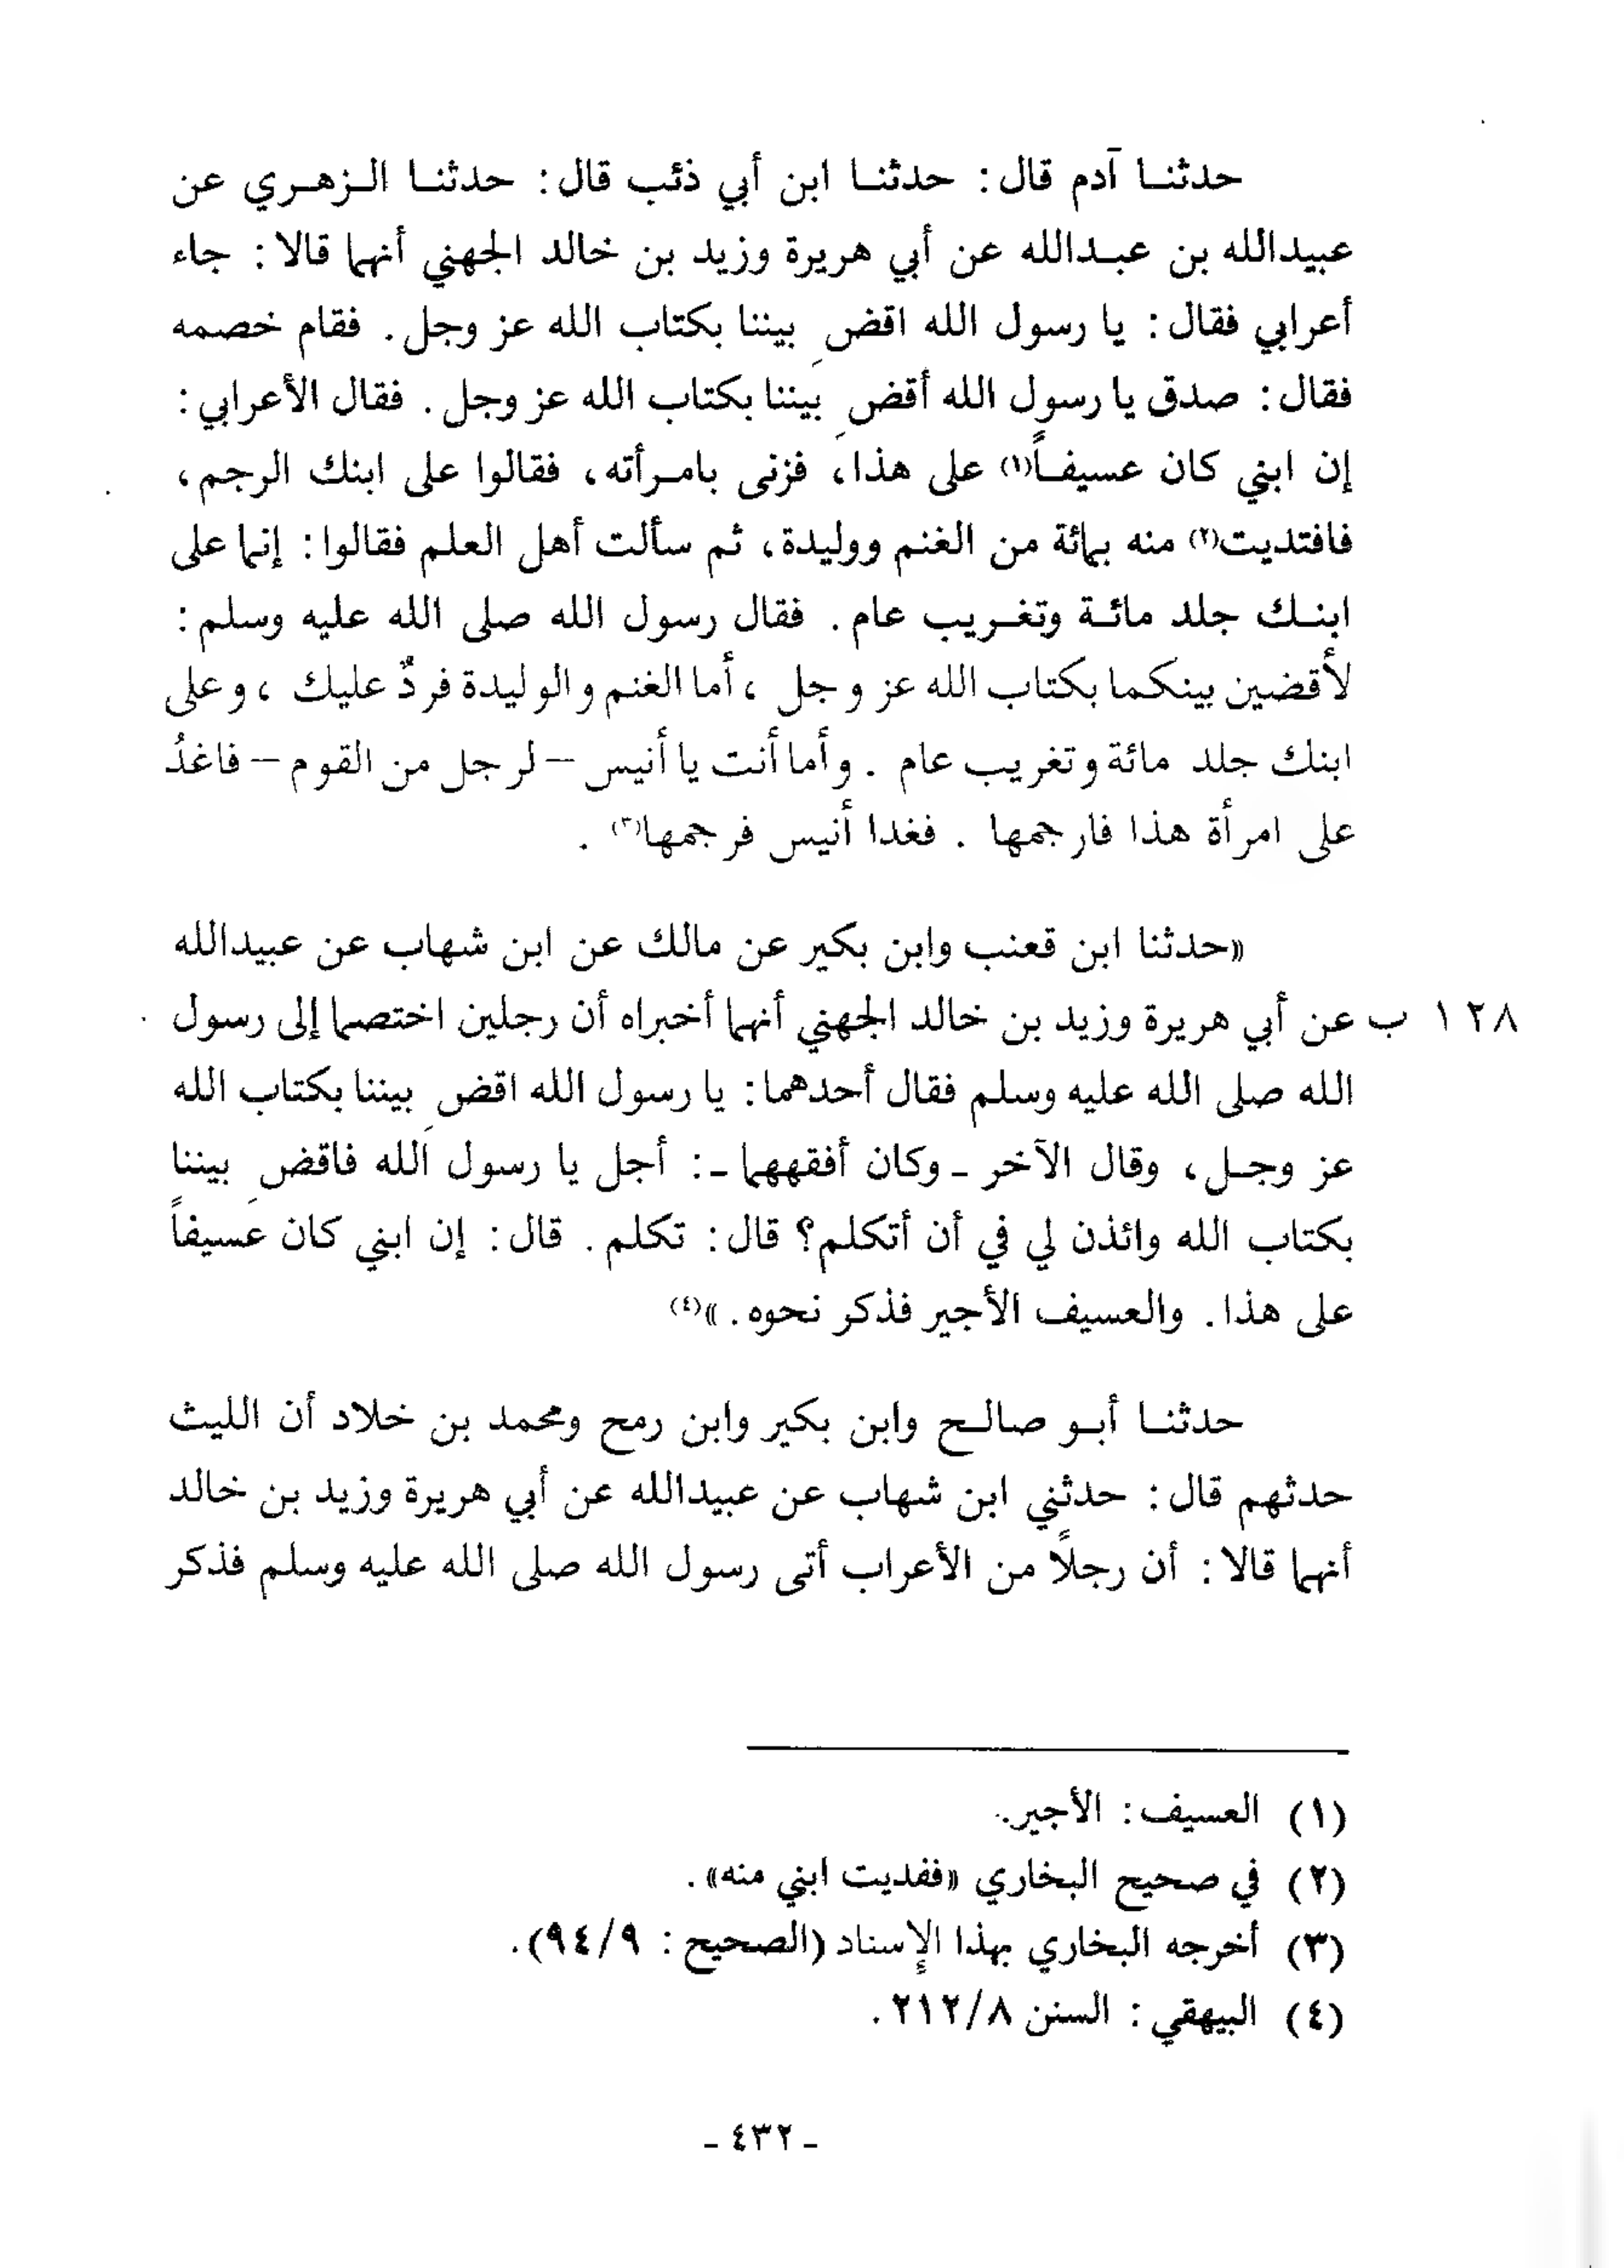 حدثنا آدم قال: حدثنا ابن أبي ذئب قال: حدثنا الزهري عن
عبيدالله بن عبدالله عن أبي هريرة وزيد بن خالد الجهني أنهما قالا: جاء
أعرابي فقال: يا رسول الله اقضِ بيننا بكتاب الله عز وجل. فقام خصمه
فقال: صدق يا رسول الله أقضِ بيننا بكتاب الله عز وجل. فقال الأعرابي:
إن ابني كان عسيفاً(١) على هذا، فزنى بامرأته، فقالوا على ابنك الرجم،
فافتديت(٢) منه بمائة من الغنم ووليدة، ثم سألت أهل العلم فقالوا: إنما على
ابنك جلد مائة وتغريب عام. فقال رسول الله صلى الله عليه وسلم:
لأقضين بينكما بكتاب الله عز وجل، أما الغنم والوليدة فردٌ عليك، وعلى
ابنك جلد مائة وتغريب عام. وأما أنت يا أنيس – لرجل من القوم – فاغدُ
على امرأة هذا فارجمها. فغدا أنيس فرجمها(٣).
«حدثنا ابن قعنب وابن بكير عن مالك عن ابن شهاب عن عبيدالله
١٢٨ ب عن أبي هريرة وزيد بن خالد الجهني أنهما أخبراه أن رجلين اختصما إلى رسول
الله صلى الله عليه وسلم فقال أحدهما: يا رسول الله اقضِ بيننا بكتاب الله
عز وجل، وقال الآخر - وكان أفقههما -: أجل يا رسول الله فاقضِ بيننا
بكتاب الله وائذن لي في أن أتكلم؟ قال: تكلم. قال: إن ابني كان عسيفاً
على هذا. والعسيف الأجير فذكر نحوه.»(٤)
حدثنا أبو صالح وابن بكير وابن رمح ومحمد بن خلاد أن الليث
حدثهم قال: حدثني ابن شهاب عن عبيدالله عن أبي هريرة وزيد بن خالد
أنهما قالا: أن رجلاً من الأعراب أتى رسول الله صلى الله عليه وسلم فذكر
(١) العسيف: الأجير.
(٢) في صحيح البخاري «ففديت ابني منه».
(٣) أخرجه البخاري بهذا الإسناد (الصحيح: ٩٤/٩).
(٤) البيهقي: السنن ٢١٢/٨.
- ٤٣٢ -